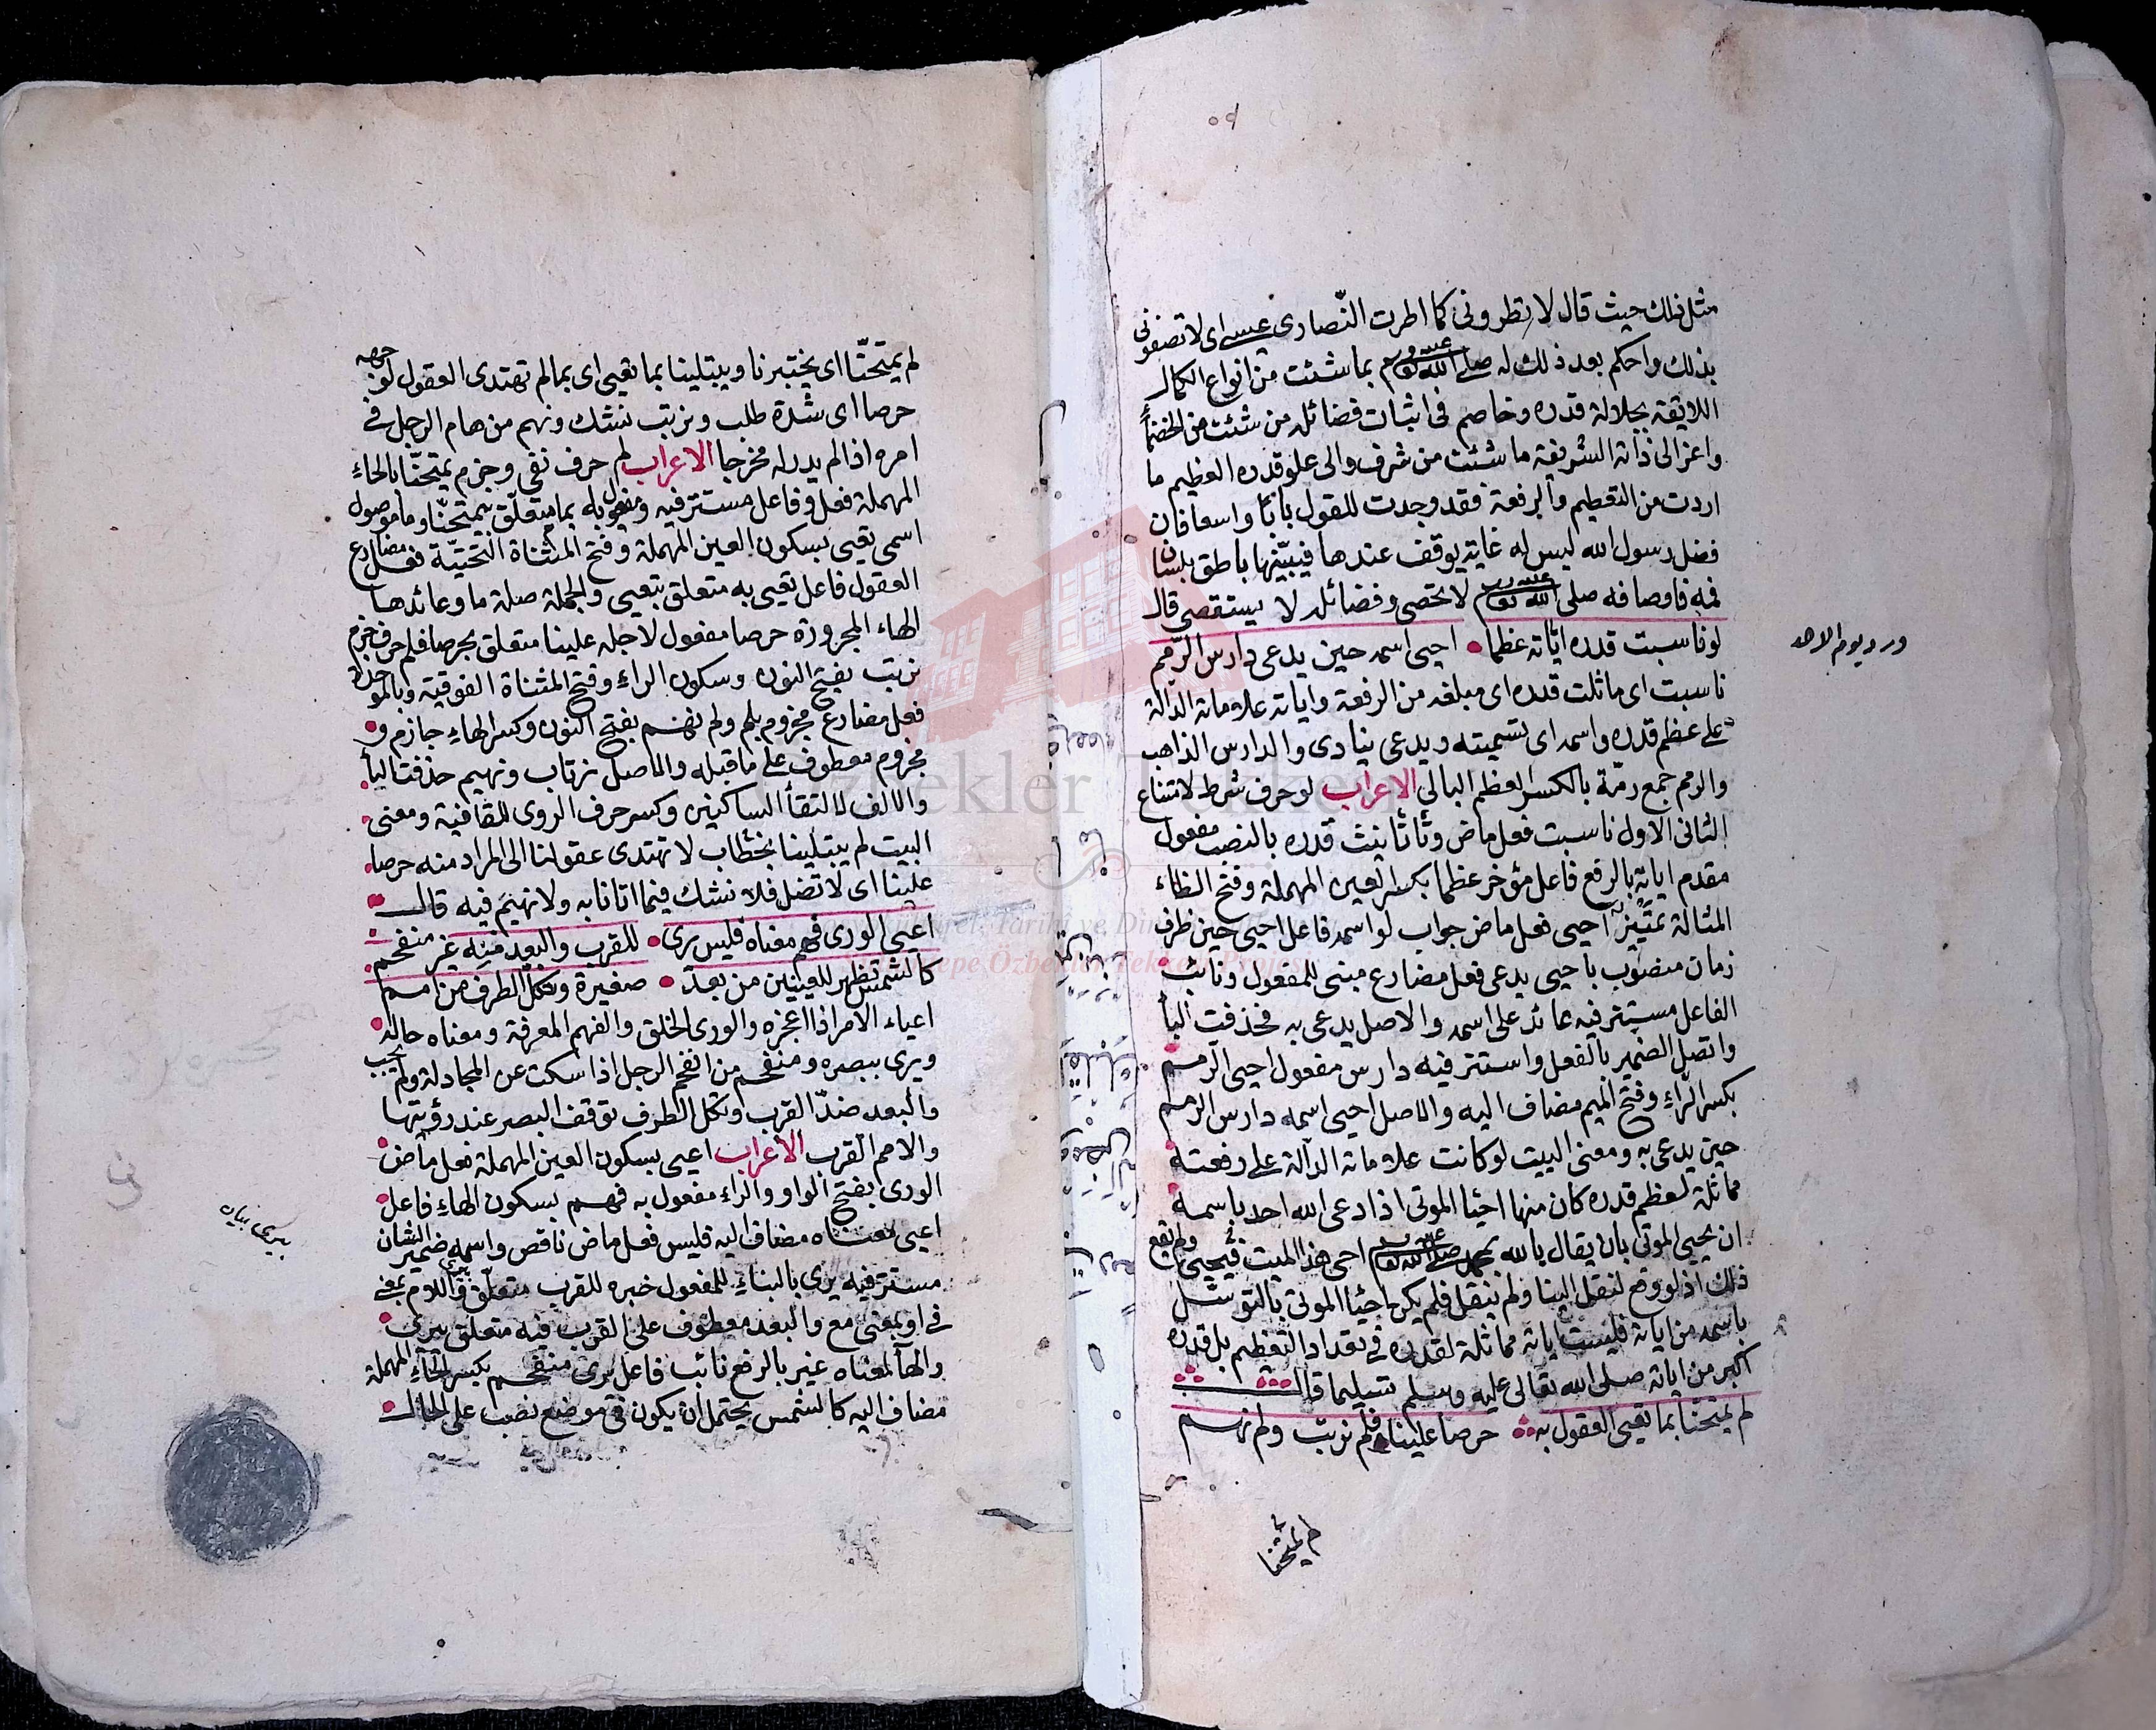 مثل ذلك حيث قال لا تطروني كما اطرت النّصارى عيسى اى لا تصفونى
بذلك واحكم بعد ذلك له صلى الله عليه وسلم بما شئت من انواع الكمال
اللايقة بجلالة قدره وخاصم فى اثبات فضائله من شئت من الخصماء
واعز الى ذاته الشريفة ما شئت من شرف والى علو قدره العظيم ما
اردت من التعظيم والرفعة فقد وجدت للقول بابًا واسعا فان
فضل رسول الله ليس له غاية يوقف عندها فيبيّنها ناطق بلسان
فمه فاوصافه صلى الله عليه وسلم لا تحصى وفضائله لا يستقصى قال
لو ناسبت قدره اياته عظما احيى اسمه حين يدعى دارس الرّمم
ورد يوم الاحد
ناسبت اى ماثلت قدره اى مبلغه من الرفعة واياته علاماته الدالة
على عظم قدره واسمه اى تسميته ويدعى ينادى والدارس الذاهب
والرمم جمع رمّة بالكسر العظم البالى الاعراب لو حرف شرط لامتناع
الثانى الاول ناسبت فعل ماض وتا تانيث قدره بالنصب مفعول
مقدم اياته بالرفع فاعل مؤخر عظما بكسر العين المهملة وفتح الظاء
المثالة تمييز احيى فعل ماض جواب لو اسمه فاعل احيى حين ظرف
زمان منصوب باحيى يدعى فعل مضارع مبنى للمفعول ونائب
الفاعل مستتر فيه عائد على اسمه والاصل يدعى به فحذفت البأ
واتصل الضمير بالفعل واستتر فيه دارس مفعول احيى الرّمم
بكسر الرّاء وفتح الميم مضاف اليه والاصل احيى اسمه دارس الرمم
حين يدعى به ومعنى البيت لو كانت علاماته الدالة على رفعته
مماثلة لعظم قدره كان منها احيا الموتى اذا دعى الله احد باسمه
ان يحيى الموتى بان يقال يا لله بمحمد صلى الله عليه وسلم احى هذا الميت فيحيى ولم تقع
ذلك اذ لو وقع لنقل الينا ولم ينقل فلم يكن احيا الموتى بالتوسّل
باسمه من اياته فليست اياته مماثلة لقدره فى تعداد التعظيم بل قدره
اكبر من اياته صلى الله تعالى عليه وسلم تسليما قال
لم يمتحنّا بما تعيى العقول به حرصا علينا فلم نرتب ولم نهم
لم يمتحنا
لم يمتحنّا اى يختبرنا ويبتلينا بما تعيى اى بما لم تهتدى العقول لوجهه
حرصا اى شدة طلب ونرتب نشك ونهم من هام الرجل فى
امره اذا لم يدر له مخرجا الاعراب لم حرف نفى وجزم يمتحنّا بالحاء
المهملة فعل وفاعل مستتر فيه ومفعول به بما متعلّق بيمتحنّا وما موصول
اسمى تعيى بسكون العين المهملة وفتح المثناة التحتيّة فعل مضارع
العقول فاعل تعيى به متعلق بتعيى والجملة صلة ما وعائدها
الهاء المجرورة حرصا مفعول لاجله علينا متعلق بحرصا فلم حرف جزم
نرتب بفتح النون وسكون الراء وفتح المثناة الفوقية وبالموحدة
فعل مضارع مجزوم بلم ولم نهم بفتح النون وكسر الهاء جازم و
مجزوم معطوف على ما قبله والاصل نرتاب ونهيم حذفت اليأ
والالف لالتقأ الساكنين وكسر حرف الروى للقافية ومعنى
البيت لم يبتلينا بخطاب لا تهتدى عقولنا الى المراد منه حرصا
علينا اى لا تضل فلا نشك فيما اتانا به ولا نهيم فيه قال
اعيى الورى فهم معناه فليس يرى للقرب والبعد منه غير منفحم
كالشمس تظهر للعينين من بعد صغيرة وتكل الطرف من امم
اعياء الامر اذا اعجزه والورى الخلق والفهم المعرفة ومعناه حاله
ويرى يبصره ومنفحم من انفحم الرجل اذا سكت عن المجادلة ولم يجب
والبعد ضدّ القرب وتكل الطرف توقف البصر عند رؤيتها
والامم القرب الاعراب اعيى بسكون العين المهملة فعل ماض
الورى بفتح الواو والراء مفعول به فهم بسكون الهاء فاعل
اعيى معناه مضاف اليه فليس فعل ماض ناقص واسمه ضمير الشان
يرى بيان
مستتر فيه يرى بالبناء للمفعول خبره للقرب متعلّق بيرى واللام بمعنى
فى او بمعنى مع والبعد معطوف على القرب فيه متعلق بيرى
والهأ لمعناه غير بالرفع نائب فاعل يرى منفحم بكسر الحاء المهملة
مضاف اليه كالشمس يحتمل ان يكون فى موضع نصب على الحال